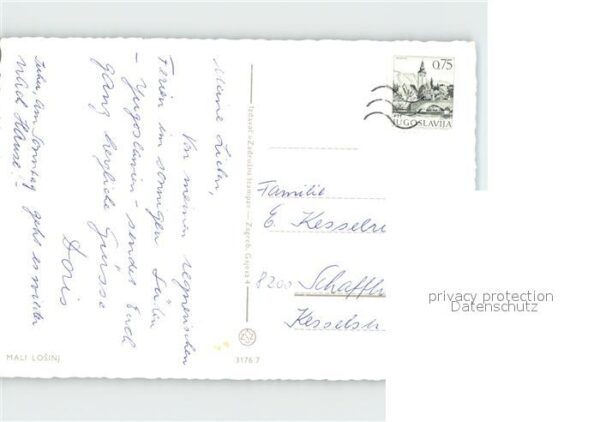 Meine Lieben,
Von meinen regnerischen
Ferien im sonnigen Süden
- Yugoslawien - sendet Euch
ganz herzliche Grüsse
Doris
am Sonntag geht es wieder
nach Hause! -
MALI LOŠINJ
Izdavač »Zadružna štampa« — Zagreb, Gajeva 4
3176/7
0,75
JUGOSLAVIJA
Familie
E. Kesselri
8200 Schaffh
Kesselst
privacy protection
Datenschutz